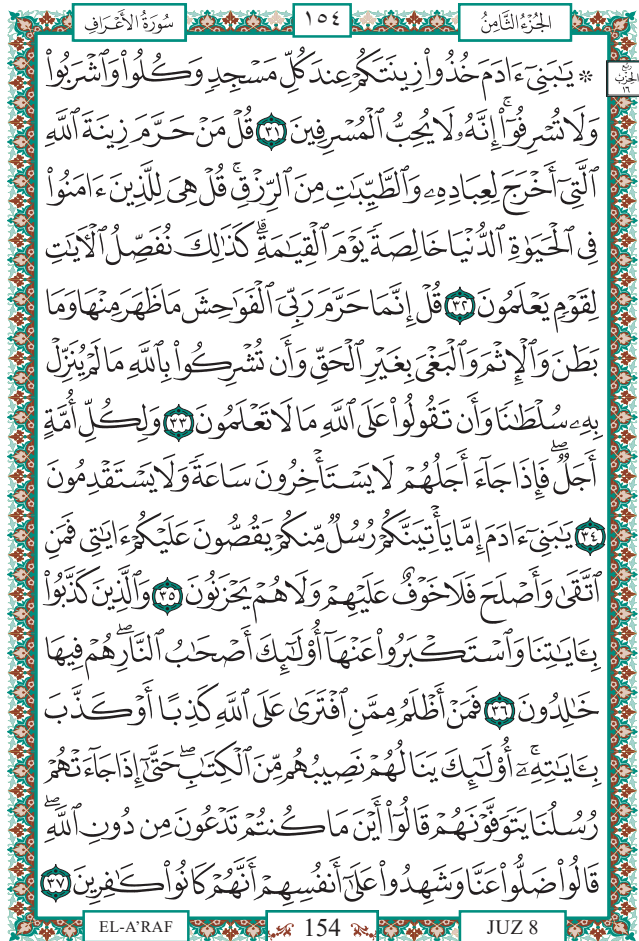 الجُزْءُ الثَّامِنُ ١٥٤ سُورَةُ الأَعْرَافِ
ربع الحزب ١٦
۞ يَٰبَنِىٓ ءَادَمَ خُذُوا۟ زِينَتَكُمْ عِندَ كُلِّ مَسْجِدٍ وَكُلُوا۟ وَٱشْرَبُوا۟
وَلَا تُسْرِفُوٓا۟ ۚ إِنَّهُۥ لَا يُحِبُّ ٱلْمُسْرِفِينَ ٣١ قُلْ مَنْ حَرَّمَ زِينَةَ ٱللَّهِ
ٱلَّتِىٓ أَخْرَجَ لِعِبَادِهِۦ وَٱلطَّيِّبَٰتِ مِنَ ٱلرِّزْقِ ۚ قُلْ هِىَ لِلَّذِينَ ءَامَنُوا۟
فِى ٱلْحَيَوٰةِ ٱلدُّنْيَا خَالِصَةً يَوْمَ ٱلْقِيَٰمَةِ ۗ كَذَٰلِكَ نُفَصِّلُ ٱلْءَايَٰتِ
لِقَوْمٍ يَعْلَمُونَ ٣٢ قُلْ إِنَّمَا حَرَّمَ رَبِّىَ ٱلْفَوَٰحِشَ مَا ظَهَرَ مِنْهَا وَمَا
بَطَنَ وَٱلْإِثْمَ وَٱلْبَغْىَ بِغَيْرِ ٱلْحَقِّ وَأَن تُشْرِكُوا۟ بِٱللَّهِ مَا لَمْ يُنَزِّلْ
بِهِۦ سُلْطَٰنًا وَأَن تَقُولُوا۟ عَلَى ٱللَّهِ مَا لَا تَعْلَمُونَ ٣٣ وَلِكُلِّ أُمَّةٍ
أَجَلٌ ۖ فَإِذَا جَآءَ أَجَلُهُمْ لَا يَسْتَأْخِرُونَ سَاعَةً وَلَا يَسْتَقْدِمُونَ
٣٤ يَٰبَنِىٓ ءَادَمَ إِمَّا يَأْتِيَنَّكُمْ رُسُلٌ مِّنكُمْ يَقُصُّونَ عَلَيْكُمْ ءَايَٰتِى فَمَنِ
ٱتَّقَىٰ وَأَصْلَحَ فَلَا خَوْفٌ عَلَيْهِمْ وَلَا هُمْ يَحْزَنُونَ ٣٥ وَٱلَّذِينَ كَذَّبُوا۟
بِـَٔايَٰتِنَا وَٱسْتَكْبَرُوا۟ عَنْهَآ أُو۟لَٰٓئِكَ أَصْحَٰبُ ٱلنَّارِ ۖ هُمْ فِيهَا
خَٰلِدُونَ ٣٦ فَمَنْ أَظْلَمُ مِمَّنِ ٱفْتَرَىٰ عَلَى ٱللَّهِ كَذِبًا أَوْ كَذَّبَ
بِـَٔايَٰتِهِۦٓ ۚ أُو۟لَٰٓئِكَ يَنَالُهُمْ نَصِيبُهُم مِّنَ ٱلْكِتَٰبِ ۖ حَتَّىٰٓ إِذَا جَآءَتْهُمْ
رُسُلُنَا يَتَوَفَّوْنَهُمْ قَالُوٓا۟ أَيْنَ مَا كُنتُمْ تَدْعُونَ مِن دُونِ ٱللَّهِ ۖ
قَالُوا۟ ضَلُّوا۟ عَنَّا وَشَهِدُوا۟ عَلَىٰٓ أَنفُسِهِمْ أَنَّهُمْ كَانُوا۟ كَٰفِرِينَ ٣٧
EL-A'RAF 154 JUZ 8